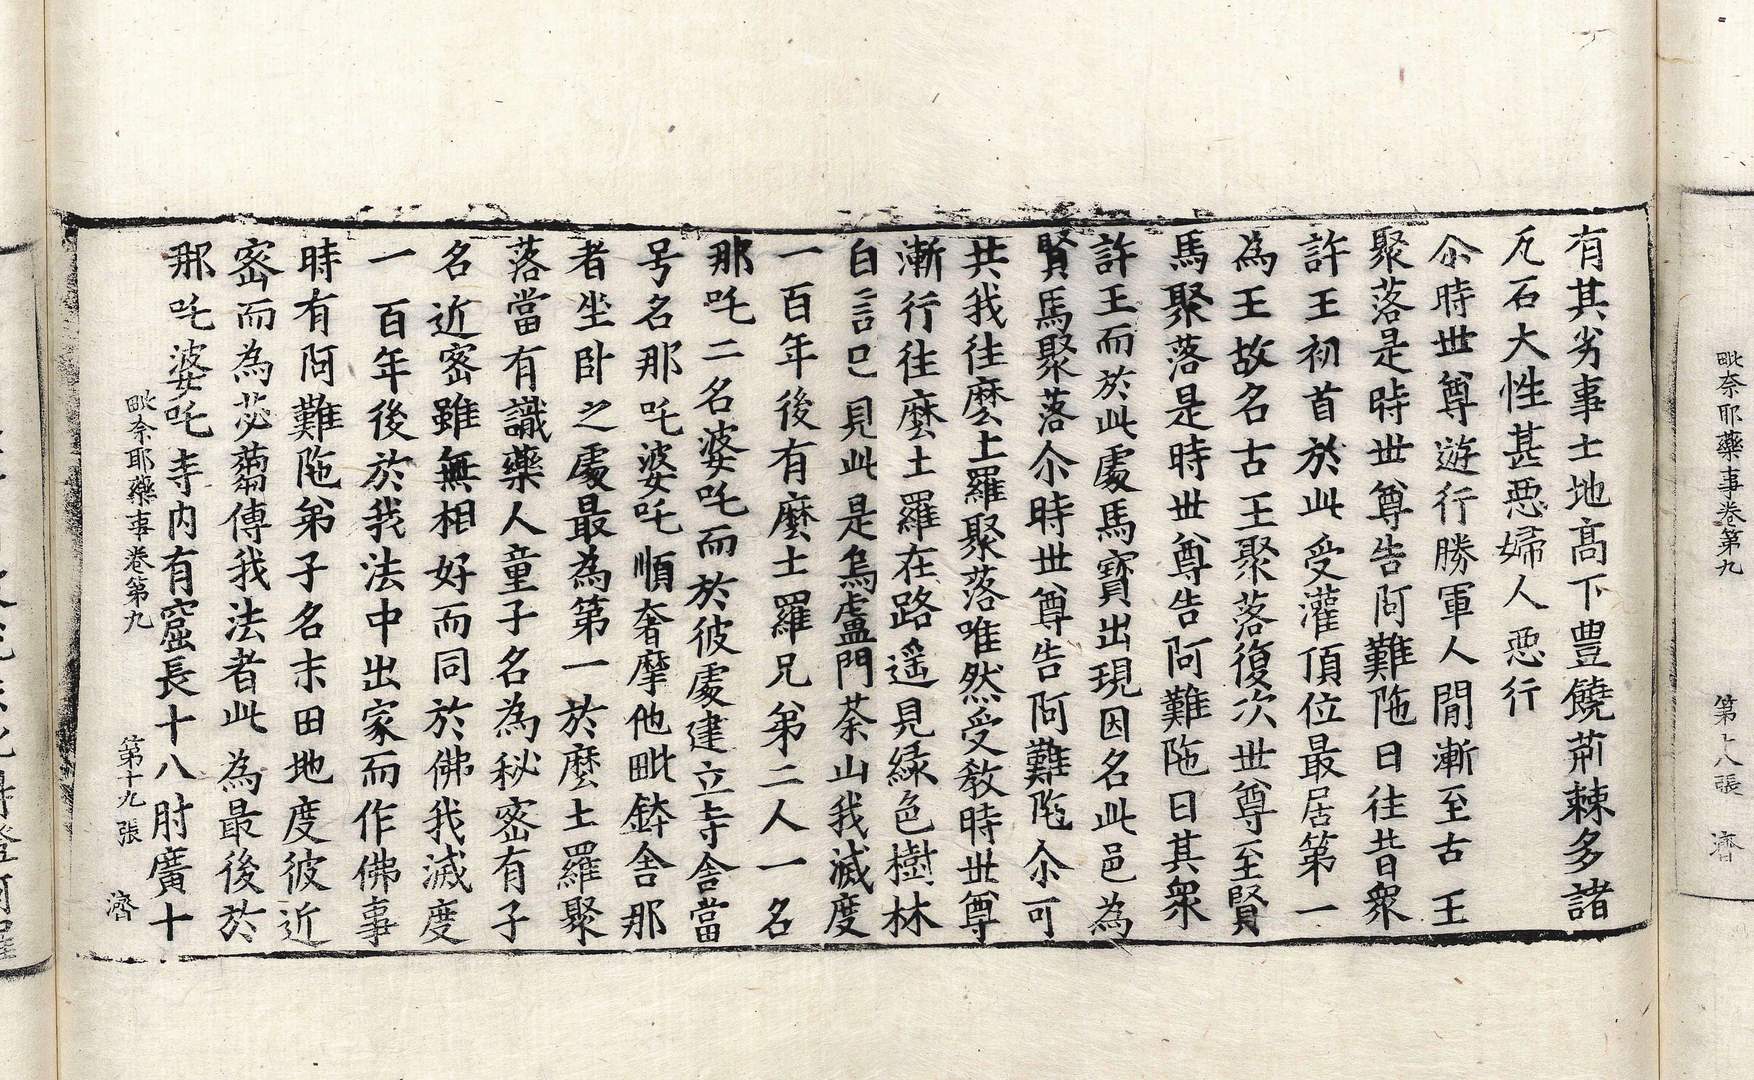 毗奈耶藥事卷第九　第十八張　濟
有其劣事土地高下豊饒荊棘多諸
瓦石大性甚惡婦人惡行
尒時世尊遊行勝軍人間漸至古王
聚落是時世尊告阿難陁曰往昔衆
許王初首於此受灌頂位最居第一
為王故名古王聚落復次世尊至賢
馬聚落是時世尊告阿難陁曰其衆
許王而於此處馬寶出現因名此邑為
賢馬聚落尒時世尊告阿難陁尒可
共我往麼土羅聚落唯然受教時世尊
漸行往麼土羅在路遥見緑色樹林
白言已見此是烏盧門荼山我滅度
一百年後有麼土羅兄弟二人一名
那吒二名婆吒而於彼處建立寺舎當
号名那吒婆吒順奢摩他毗鉢舎那
者坐卧之處最為第一於麼土羅聚
落當有識藥人童子名為秘密有子
名近密雖無相好而同於佛我滅度
一百年後於我法中出家而作佛事
時有阿難陁弟子名末田地度彼近
密而為苾蒭傳我法者此為最後於
那吒婆吒寺内有窟長十八肘廣十
毗奈耶藥事卷第九　第十九張　濟